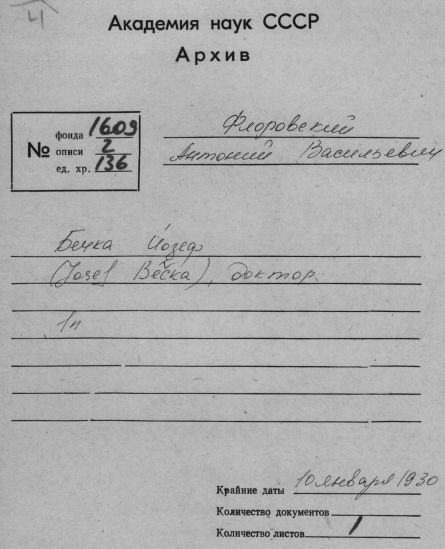 Академия наук СССР
Архив
№ фонда 1609
описи 2
ед. хр. 136
Флоровский
Антоний Васильевич
Бечка Йозеф
(Josef Bečka), доктор.
1п
Крайние даты 10 января 1930
Количество документов
Количество листов 1